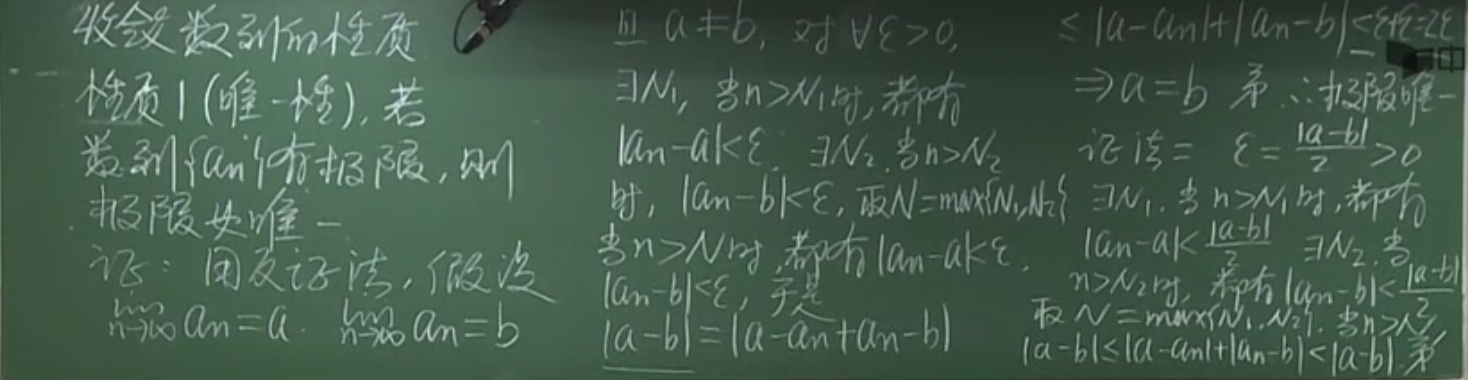 收敛数列的性质
性质1(唯一性),若
数列{an}有极限,则
极限必唯一
证:用反证法,假设
lim n→∞ an=a. lim n→∞ an=b
且 a≠b, 对∀ε>0,
∃N₁, 当n>N₁时,都有
|an-a|<ε. ∃N₂.当n>N₂
时, |an-b|<ε, 取N=max{N₁,N₂}
当n>N时,都有|an-a|<ε.
|an-b|<ε, 于是
|a-b|=|a-an+an-b|
≤|a-an|+|an-b|<ε+ε=2ε
⇒a=b 矛 ∴极限唯一
证法二 ε=|a-b|/2>0
∃N₁.当n>N₁时,都有
|an-a|<|a-b|/2 ∃N₂.当
n>N₂时, 都有|an-b|<|a-b|/2
取N=max{N₁,N₂}.当n>N,
|a-b|≤|a-an|+|an-b|<|a-b|.矛